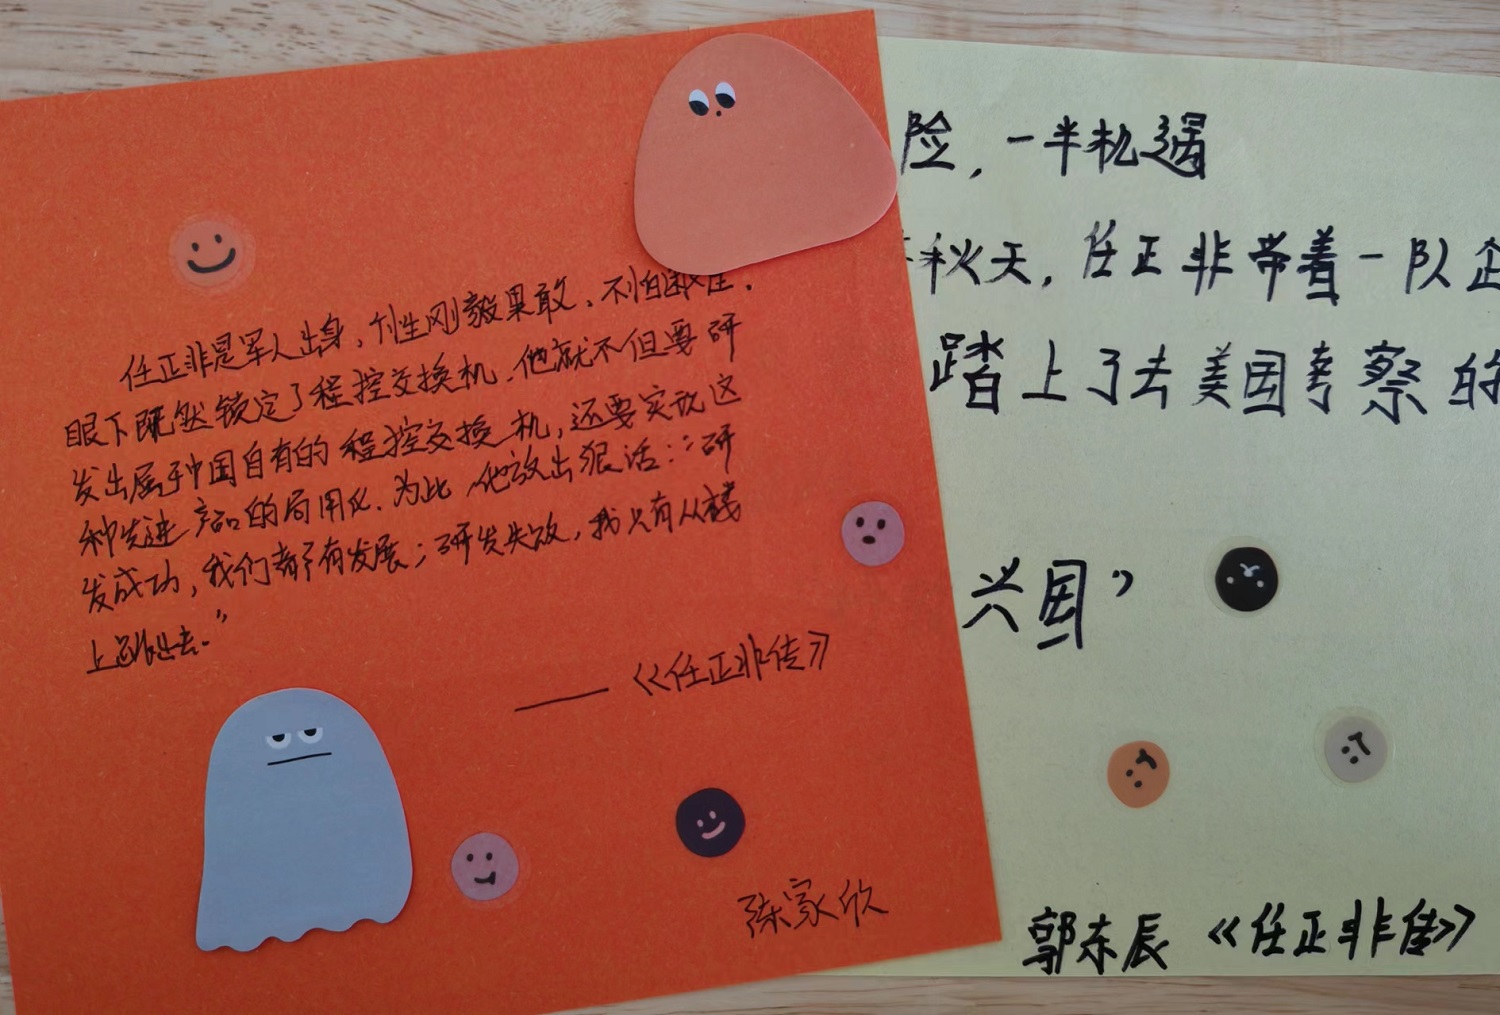 任正非是军人出身，个性刚毅果敢，不怕
眼下既然锁定了程控交换机，他就不但要研
发出属于中国自有的程控交换机，还要实现这
种先进产品的局用化。为此，他放出狠话：“研
发成功，我们都有发展；研发失败，我只有从楼
上跳出去。”
——《任正非传》
陈家欣
险，一半机遇
秋天，任正非带着一队企
踏上了去美国考察的
兴国”
郭东辰《任正非传》